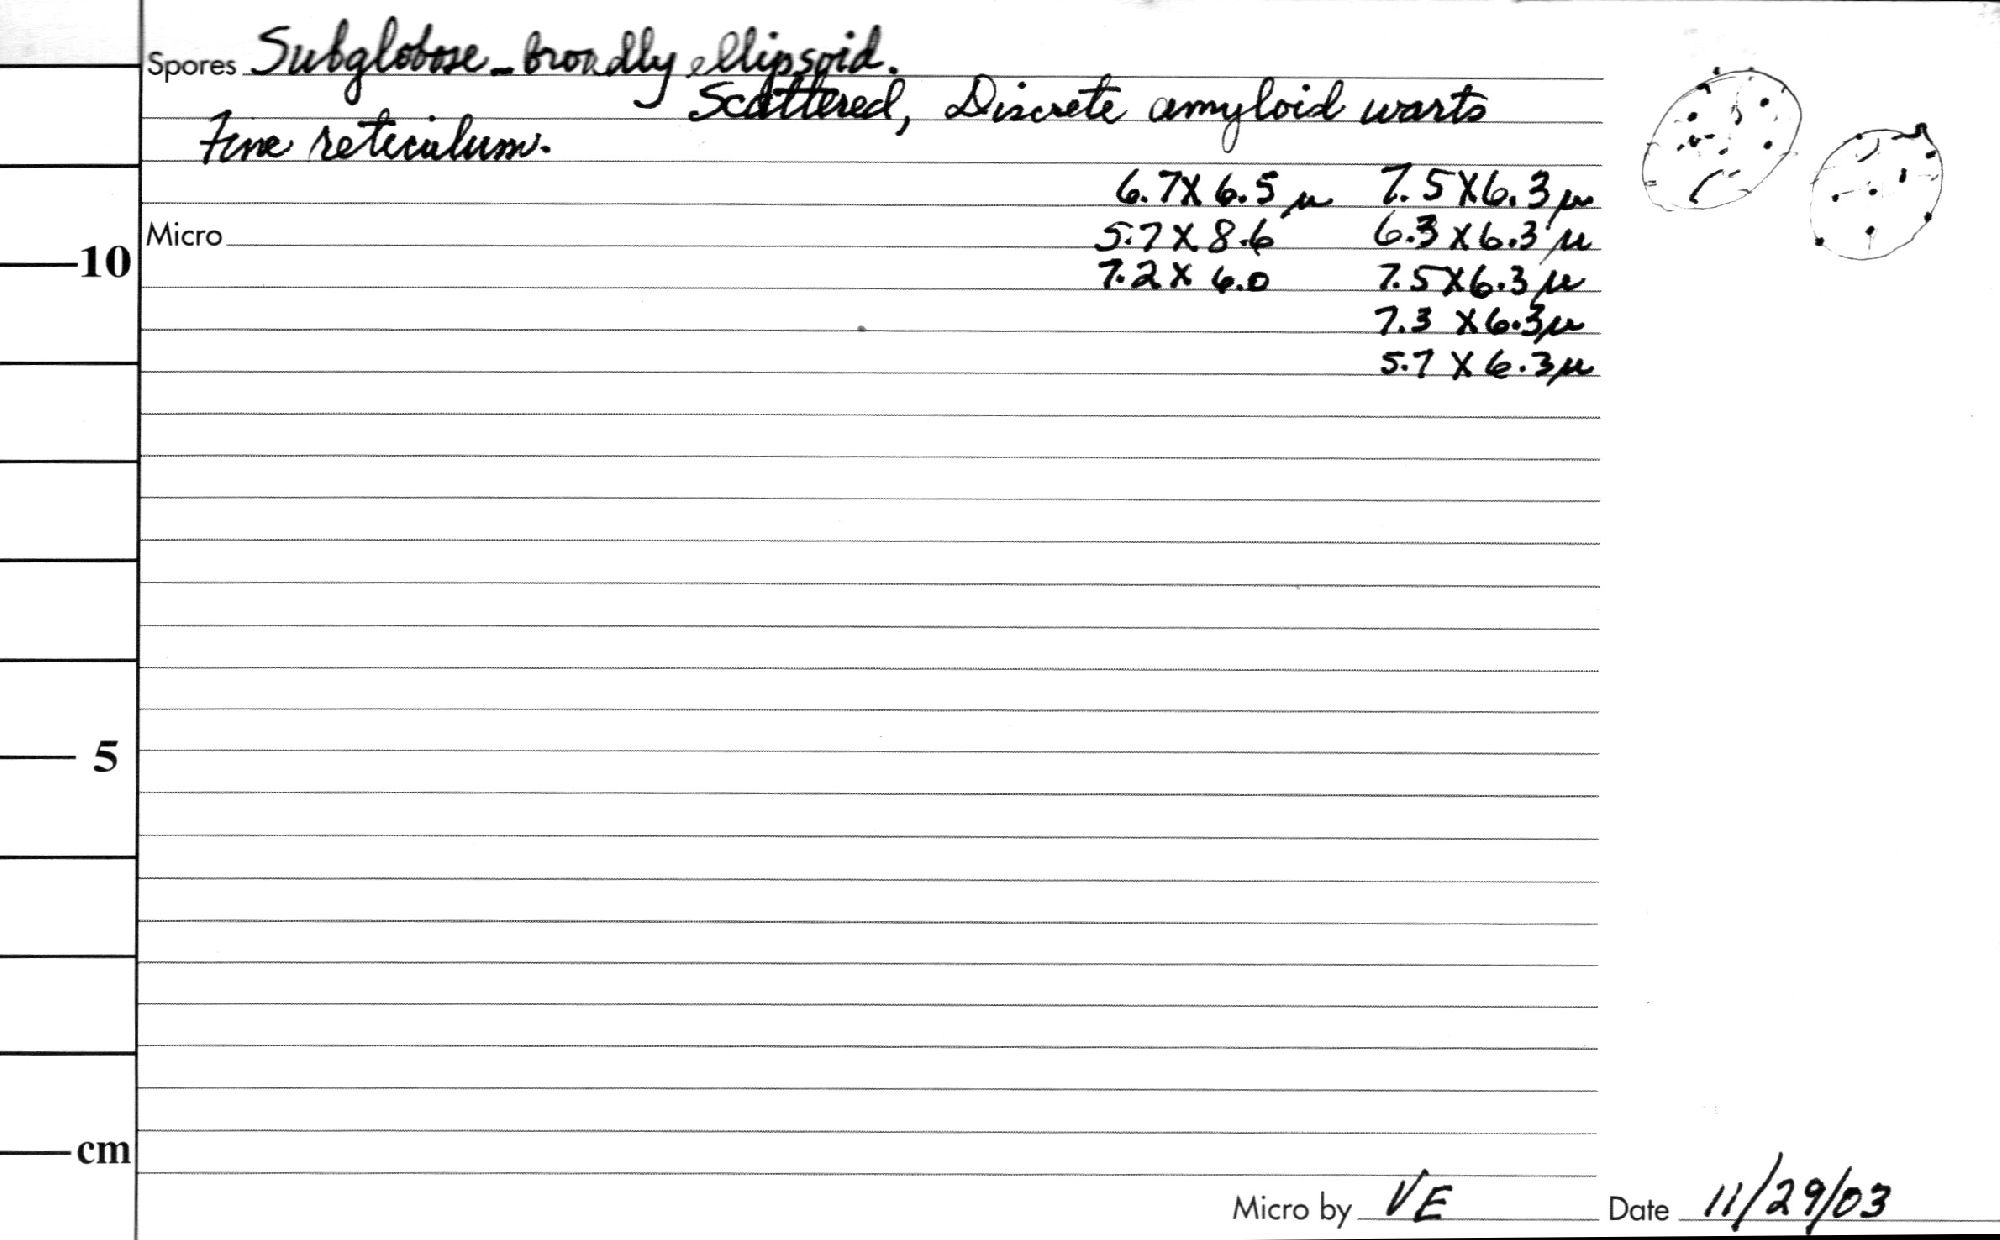 Spores Subglobose - broadly ellipsoid.
Scattered, Discrete amyloid warts
Fine reticulum.
6.7 X 6.5 µ 7.5 X 6.3 µ
Micro 5.7 X 8.6 6.3 X 6.3 µ
10
7.2 X 6.0 7.5 X 6.3 µ
7.3 X 6.3 µ
5.7 X 6.3 µ
5
cm
Micro by VE Date 11/29/03